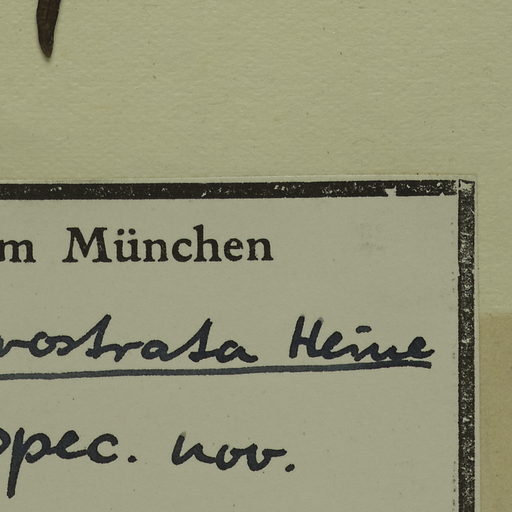 m München
rostrata Heine
spec. nov.